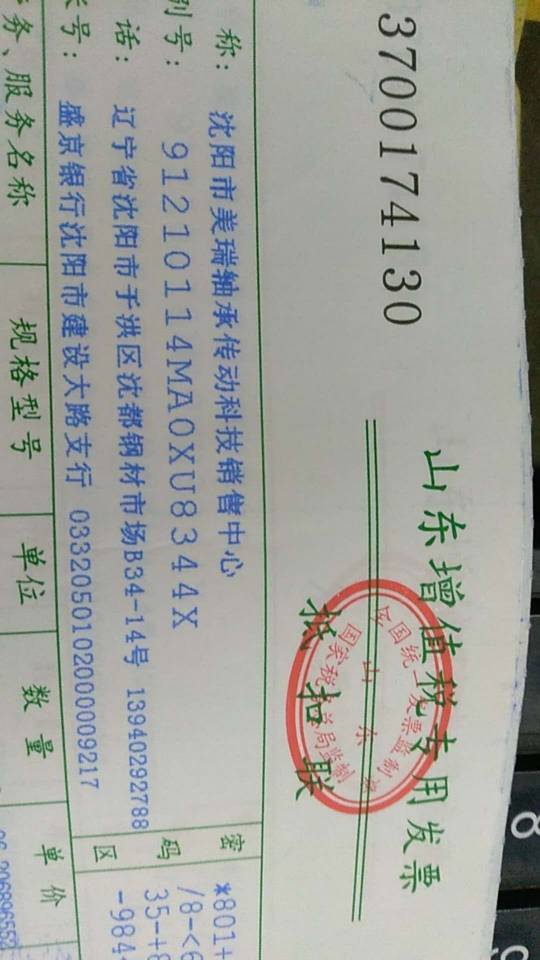 3700174130
山东增值税专用发票
全国统一发票监制章
山东
国家税务总局监制
抵扣联
称：沈阳市美瑞轴承传动科技销售中心
别号：91210114MA0XU8344X
话：辽宁省沈阳市于洪区沈都钢材市场B34-14号 13940292788
号：盛京银行沈阳市建设大路支行 0332050102000009217
密
码
区
*801+
/8-<6
35-+8
-984
务、服务名称 规格型号 单位 数量 单价